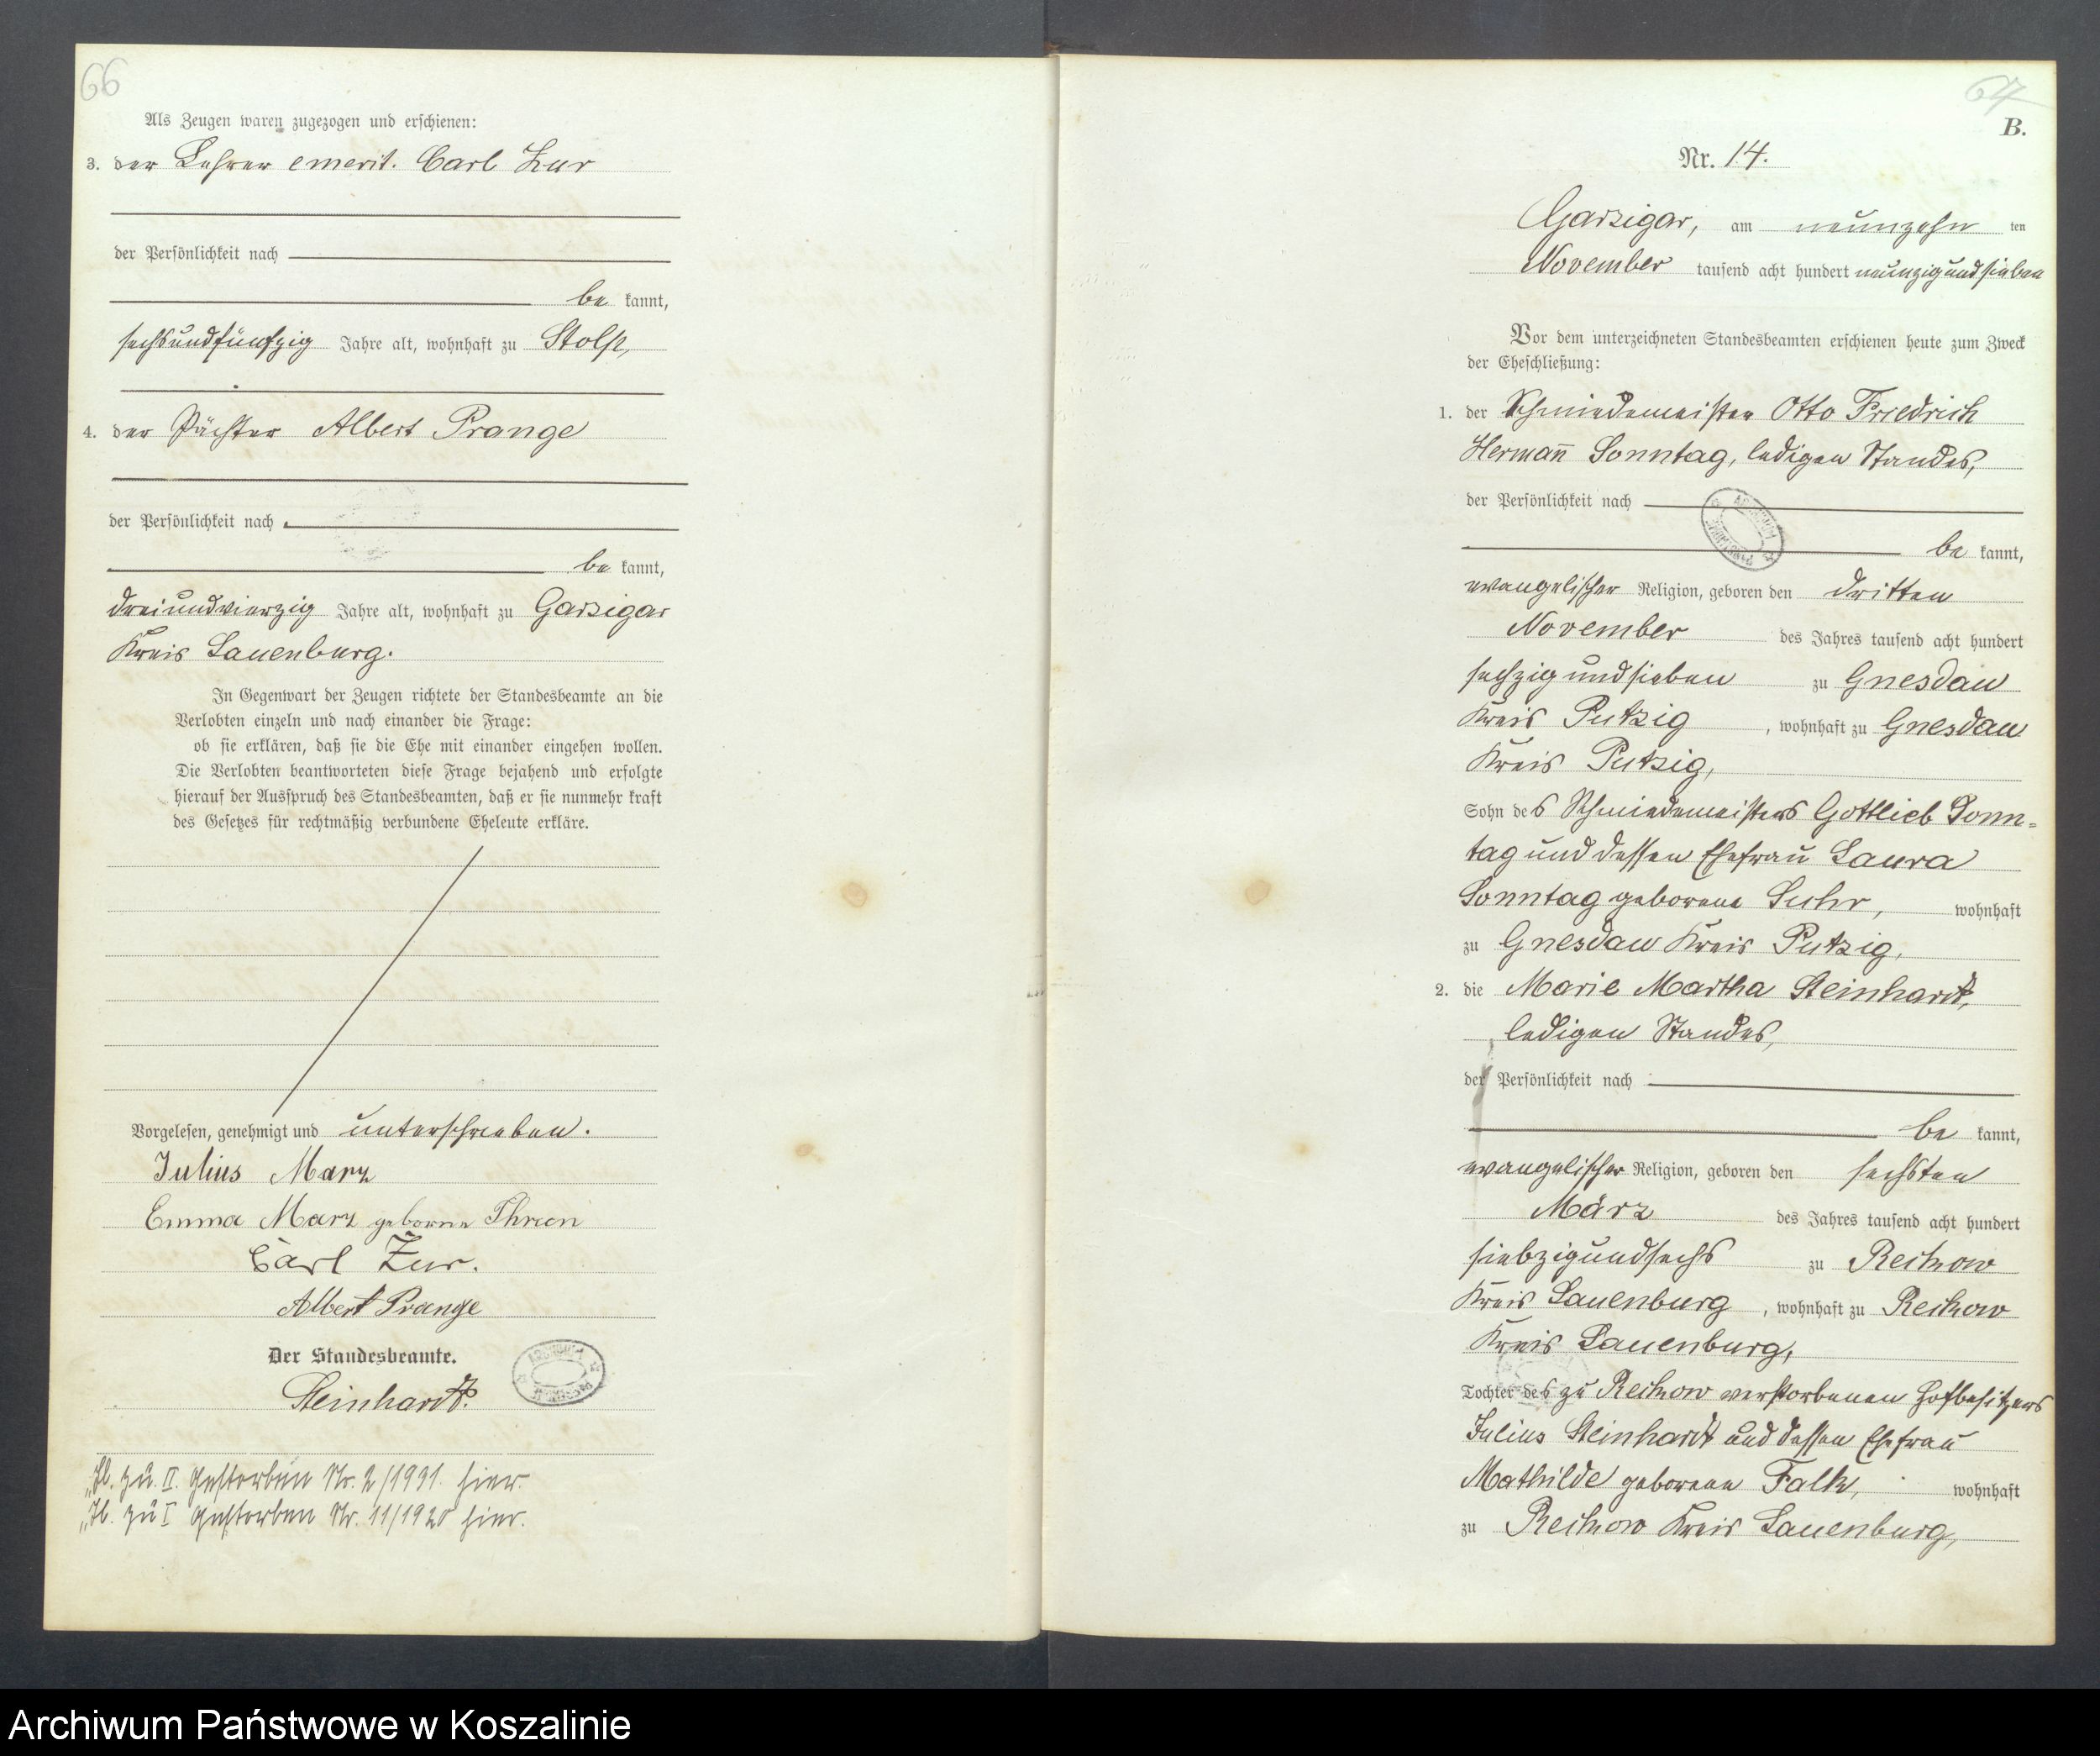 66
Als Zeugen waren zugezogen und erschienen:
3. der Lehrer emerit. Carl Zur
der Persönlichkeit nach
be kannt,
sechsundfünfzig Jahre alt, wohnhaft zu Stolp,
4. der Pächter Albert Prange
der Persönlichkeit nach
be kannt,
dreiundvierzig Jahre alt, wohnhaft zu Garzigar
Kreis Lauenburg.
In Gegenwart der Zeugen richtete der Standesbeamte an die
Verlobten einzeln und nach einander die Frage:
ob sie erklären, daß sie die Ehe mit einander eingehen wollen.
Die Verlobten beantworteten diese Frage bejahend und erfolgte
hierauf der Ausspruch des Standesbeamten, daß er sie nunmehr kraft
des Gesetzes für rechtmäßig verbundene Eheleute erkläre.
Vorgelesen, genehmigt und unterschrieben.
Julius Marz
Emma Marz geborne Thrun
Carl Zur.
Albert Prange
Der Standesbeamte.
Steinhardt.
zu II. gestorben Nr. 2/1931. hier.
zu I gestorben Nr. 11/1920 hier.
67
B.
Nr. 14.
Garzigar, am neunzehn ten
November tausend acht hundert neunzigundsieben
Vor dem unterzeichneten Standesbeamten erschienen heute zum Zweck
der Eheschließung:
1. der Schmiedemeister Otto Friedrich
Hermañ Sonntag, ledigen Standes,
der Persönlichkeit nach
be kannt,
evangelischer Religion, geboren den dritten
November des Jahres tausend acht hundert
sechzigundsieben zu Gnesdau
Kreis Putzig, wohnhaft zu Gnesdau
Kreis Putzig,
Sohn des Schmiedemeisters Gottlieb Sonn=
tag und dessen Ehefrau Laura
Sonntag geborene Suhr, wohnhaft
zu Gnesdau Kreis Putzig,
2. die Marie Martha Steinhardt,
ledigen Standes,
der Persönlichkeit nach
be kannt,
evangelischer Religion, geboren den sechsten
März des Jahres tausend acht hundert
siebzigundsechs zu Reckow
Kreis Lauenburg, wohnhaft zu Reckow
Kreis Lauenburg,
Tochter des zu Reckow verstorbenen Hofbesitzers
Julius Steinhardt und dessen Ehefrau
Mathilde geborene Falk, wohnhaft
zu Reckow Kreis Lauenburg,
Archiwum Państwowe w Koszalinie